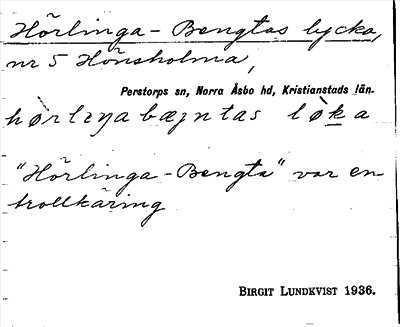 Hörlinga-Bengtas lycka,
nr 5 Hönsholma,
Perstorps sn, Norra Åsbo hd, Kristianstads län.
hørlıŋabæŋntas løka
"Hörlinga-Bengta" var en
trollkäring
BIRGIT LUNDKVIST 1936.